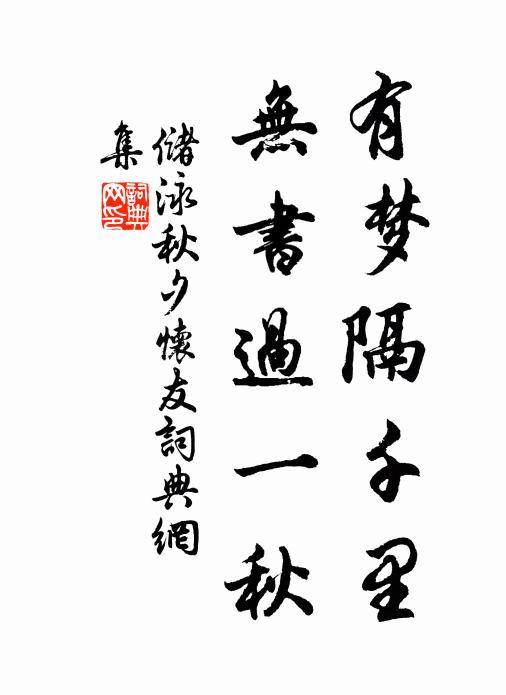 有梦隔千里
無書過一秋
儲泳秋夕懷友詞典網
集
詞典
网印